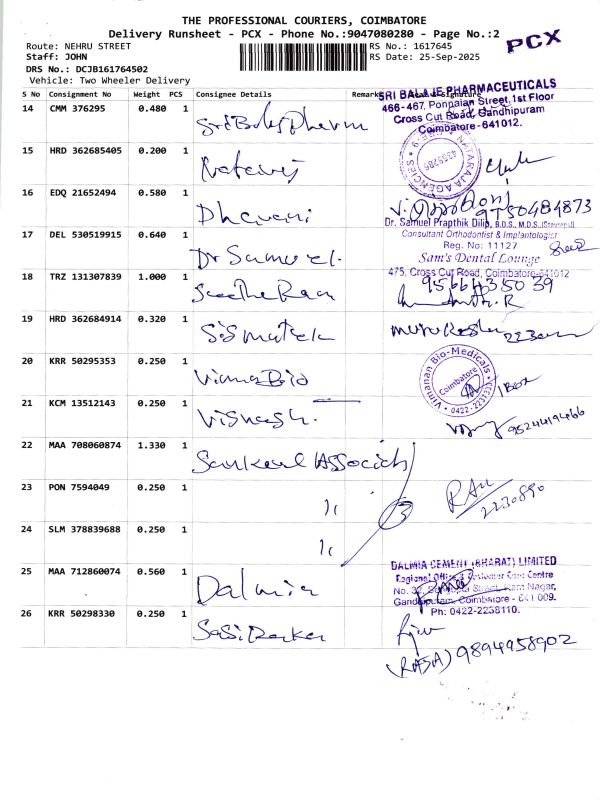 THE PROFESSIONAL COURIERS, COIMBATORE
Delivery Runsheet - PCX - Phone No.:9047080280 - Page No.:2
PCX
Route: NEHRU STREET
RS No.: 1617645
Staff: JOHN
RS Date: 25-Sep-2025
DRS No.: DCJB161764502
Vehicle: Two Wheeler Delivery
S No Consignment No Weight PCS Consignee Details Remarks
SRI BALAJE PHARMACEUTICALS
466-467, Ponnaian Street, 1st Floor
Cross Cut Road, Gandhipuram
Coimbatore-641012.
14 CMM 376295 0.480 1
15 HRD 362685405 0.200 1 Nataraj
NATARAJA AGENCIES
16 EDQ 21652494 0.580 1 Dharani
9750484873
Dr. Samuel Prapthik Dilip, B.D.S., M.D.S.
Consultant Orthodontist & Implantologist
Reg. No: 11127
Sam's Dental Lounge
475, Cross Cut Road, Coimbatore-641012
17 DEL 530519915 0.640 1 Dr Samuel.
18 TRZ 131307839 1.000 1
9566435039
19 HRD 362684914 0.320 1
20 KRR 50295353 0.250 1 Vimna Bio
Vimanan Bio-Medicals
Coimbatore
0422-2237331
1 Box
21 KCM 13512143 0.250 1
9524419466
22 MAA 708060874 1.330 1
23 PON 7594049 0.250 1 ,,
2230890
24 SLM 378839688 0.250 1 ,,
3
25 MAA 712860074 0.560 1 Dalmia
DALMIA CEMENT (BHARAT) LIMITED
Regional Office & Customer Care Centre
Ram Nagar,
Gandhipuram, Coimbatore - 641 009.
Ph: 0422-2238110.
26 KRR 50298330 0.250 1
(RAJA) 9894958902